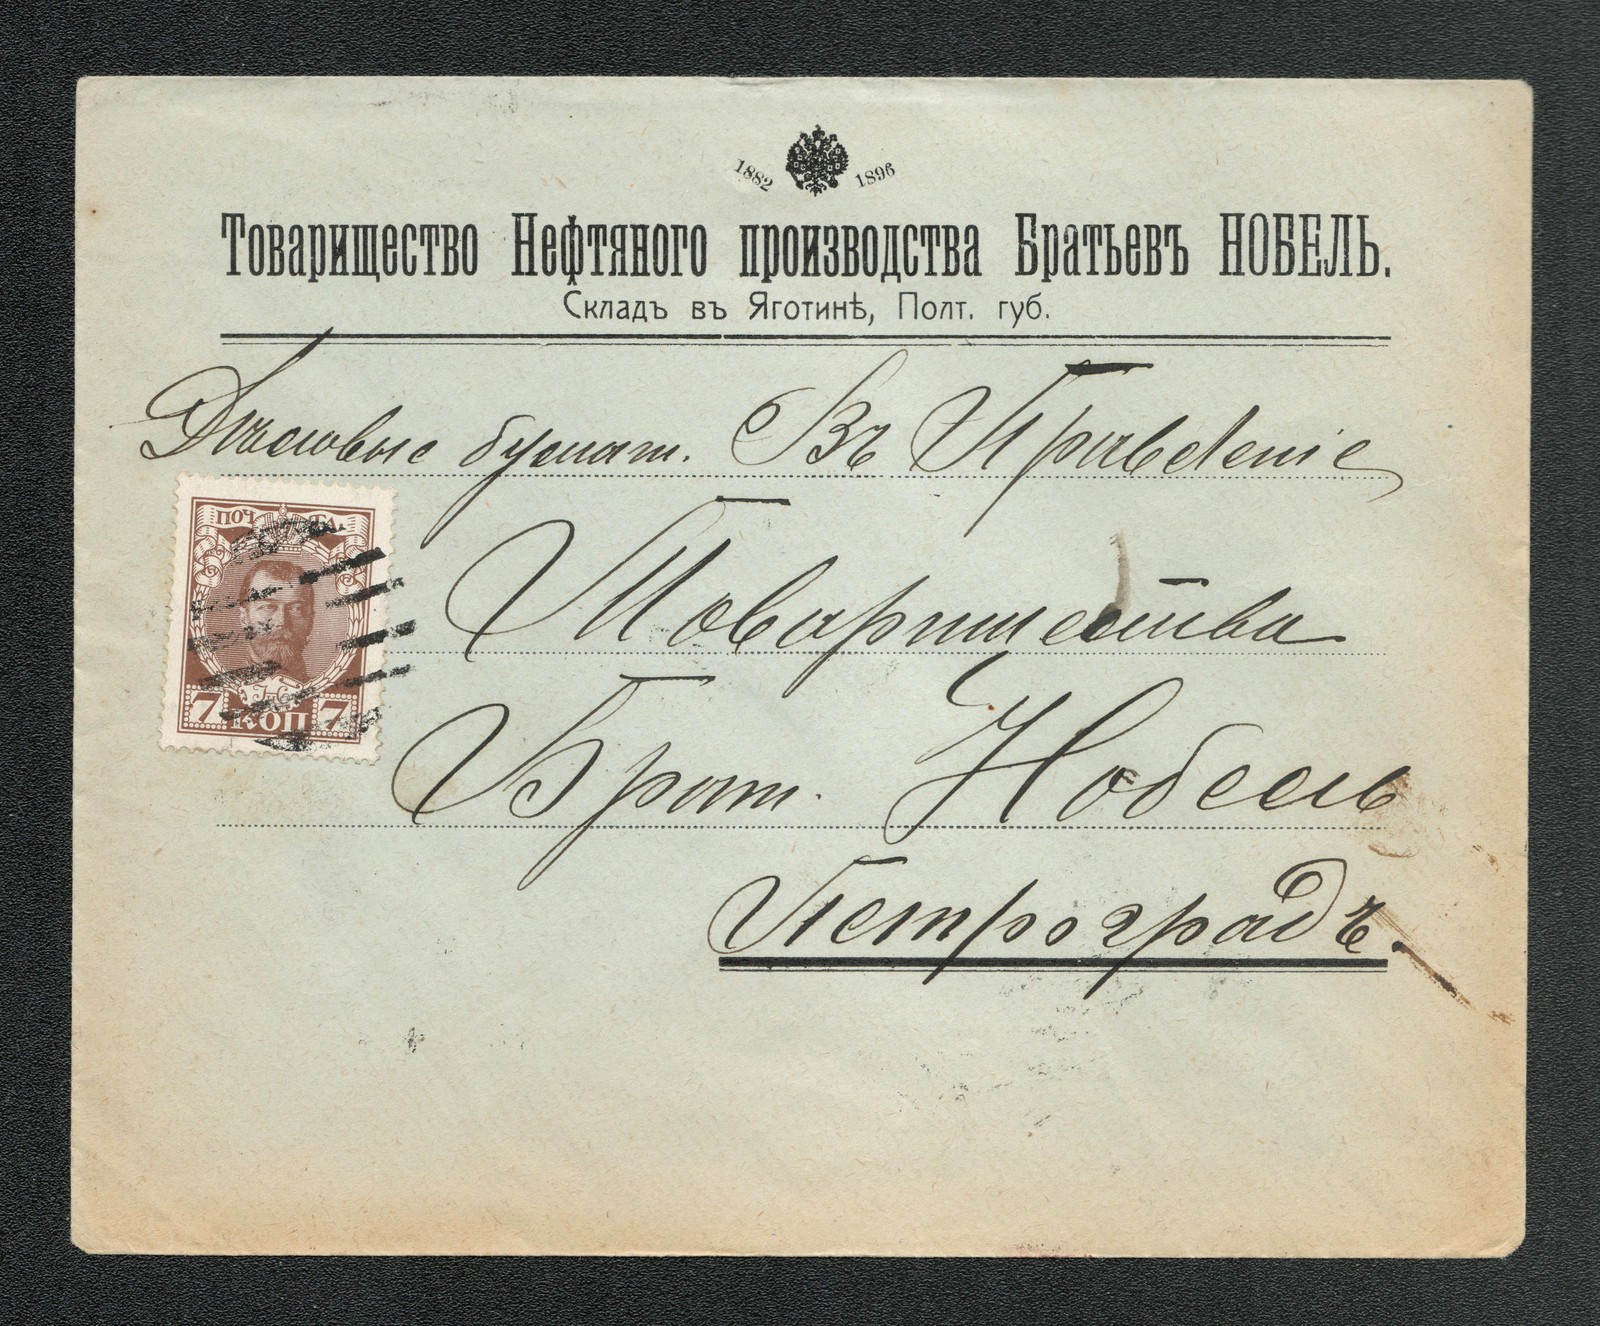 1882 1896
Товарищество Нефтяного производства Братьевъ НОБЕЛЬ.
Складъ въ Яготинѣ, Полт. губ.
Дѣловыя бумаг. Въ Правленіе
Товарищества
Брат. Нобель
Петроградъ.
ПОЧТА
7 КОП 7